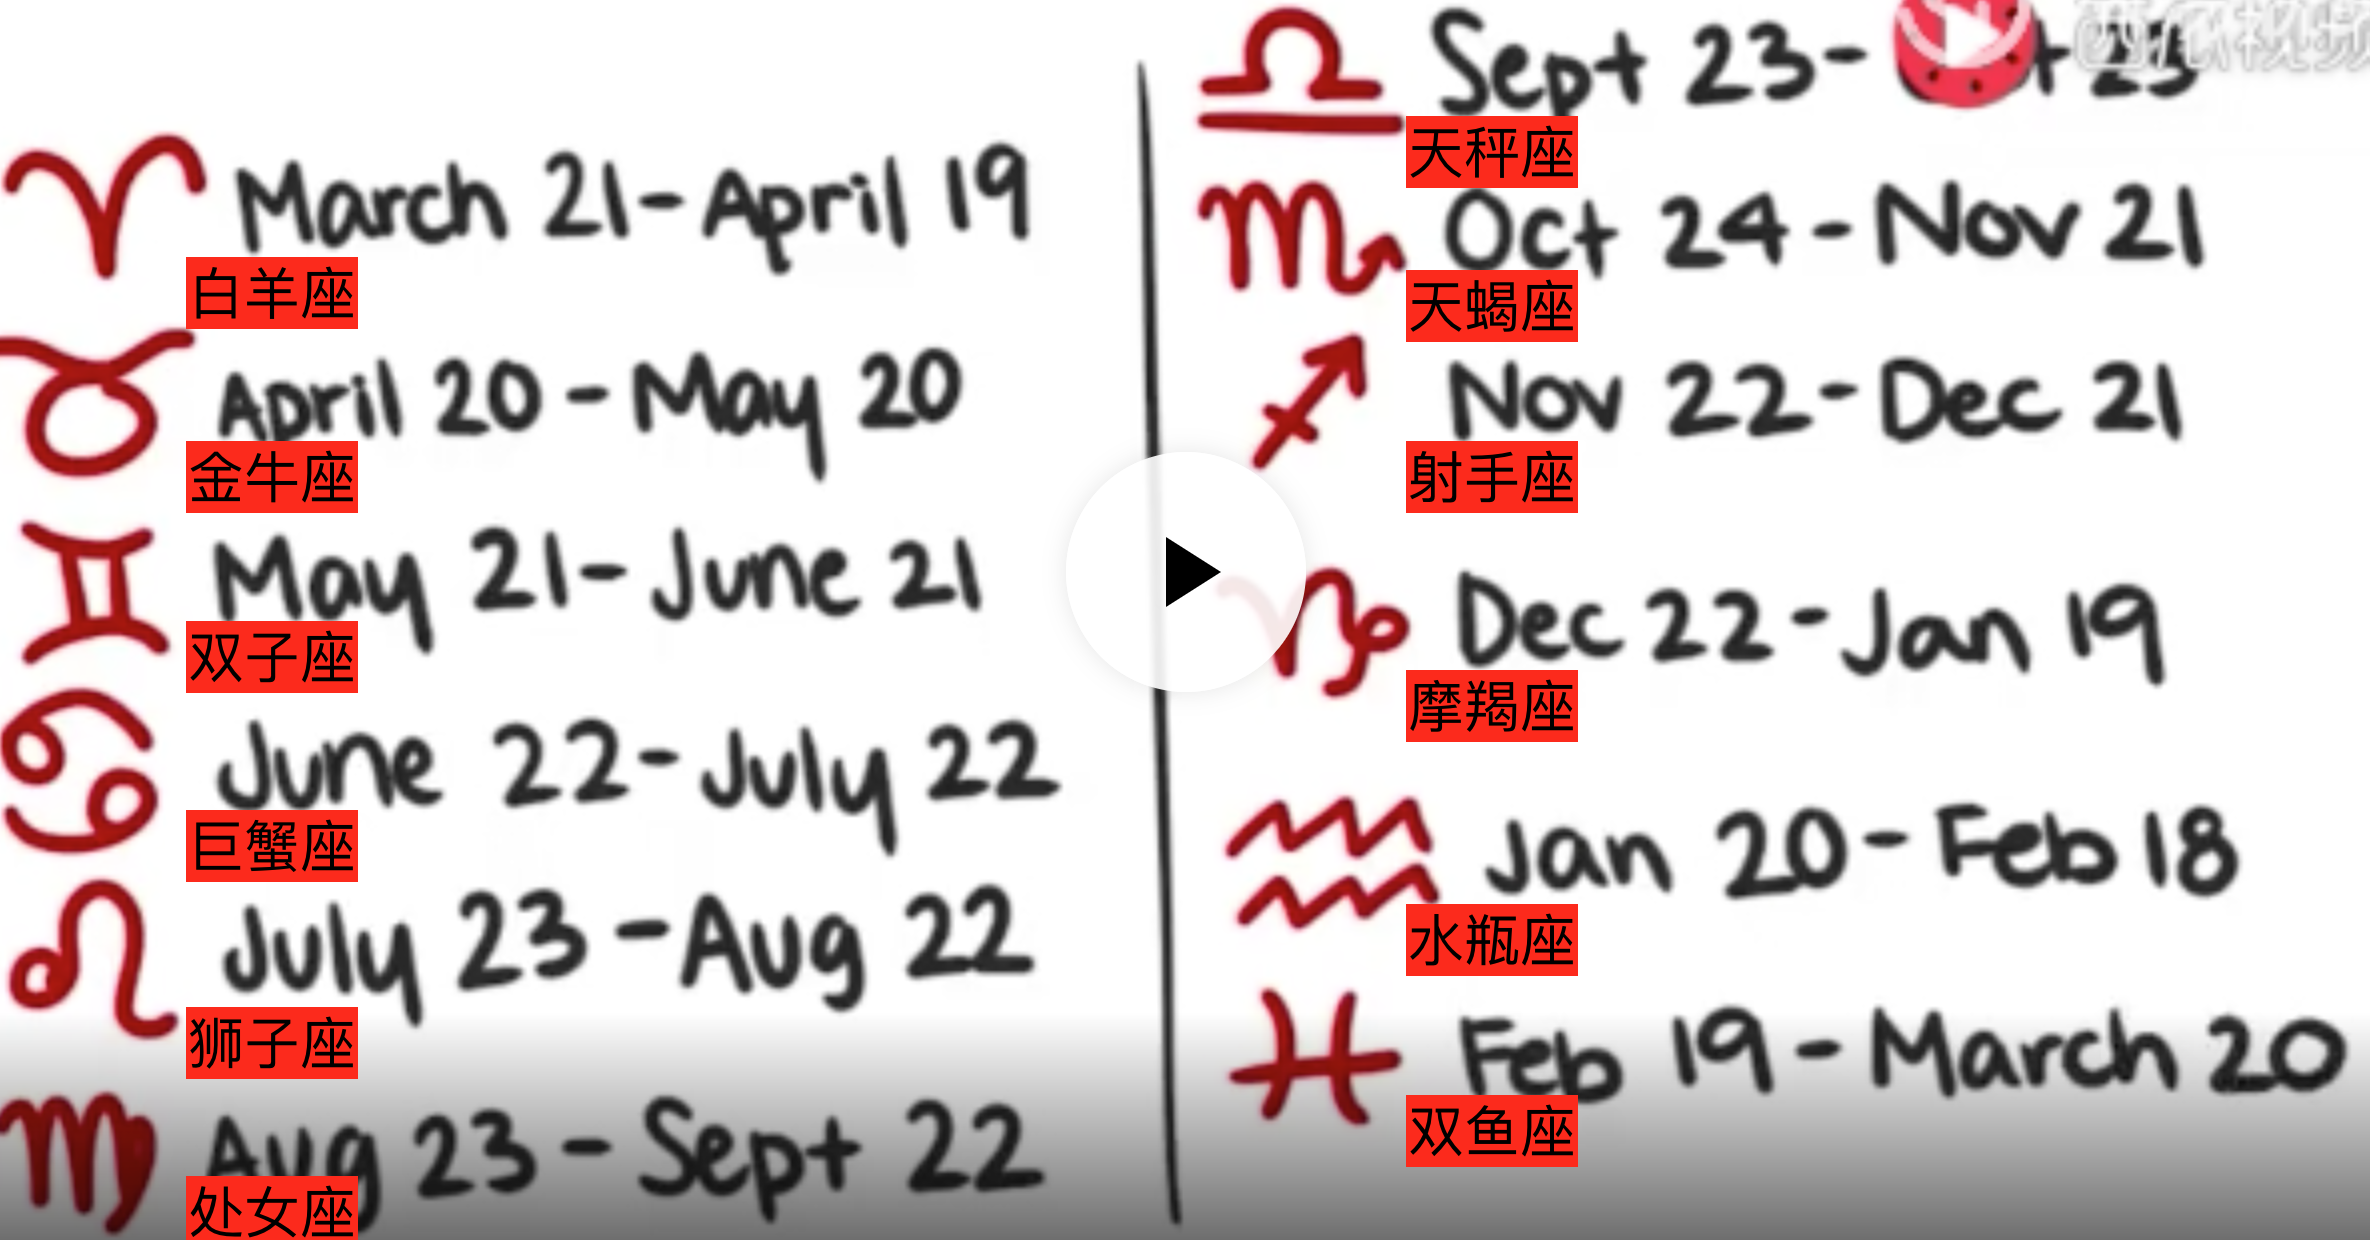 March 21-April 19
白羊座
April 20-May 20
金牛座
May 21-June 21
双子座
June 22-July 22
巨蟹座
July 23-Aug 22
狮子座
Aug 23-Sept 22
处女座
Sept 23- 23
西瓜视频
天秤座
Oct 24-Nov 21
天蝎座
Nov 22-Dec 21
射手座
Dec 22-Jan 19
摩羯座
Jan 20-Feb 18
水瓶座
Feb 19-March 20
双鱼座